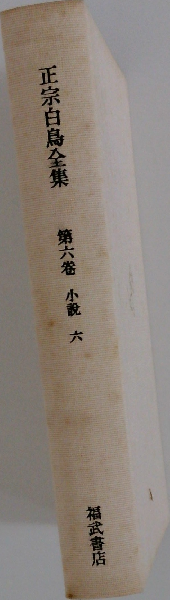 正宗白鳥全集
第六巻 小説 六
福武書店